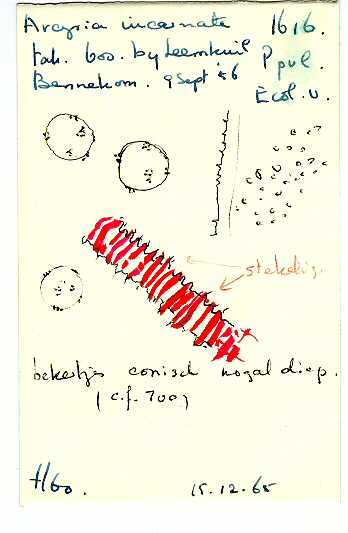 Arcyria incarnata 1616.
fak. 600. by Leemkuil P pul.
Bennekom. 9 Sept '56 Ecol. U.
stekelig.
bekertjes conisch nogal diep.
(c.f. 700)
H60. 15.12.65